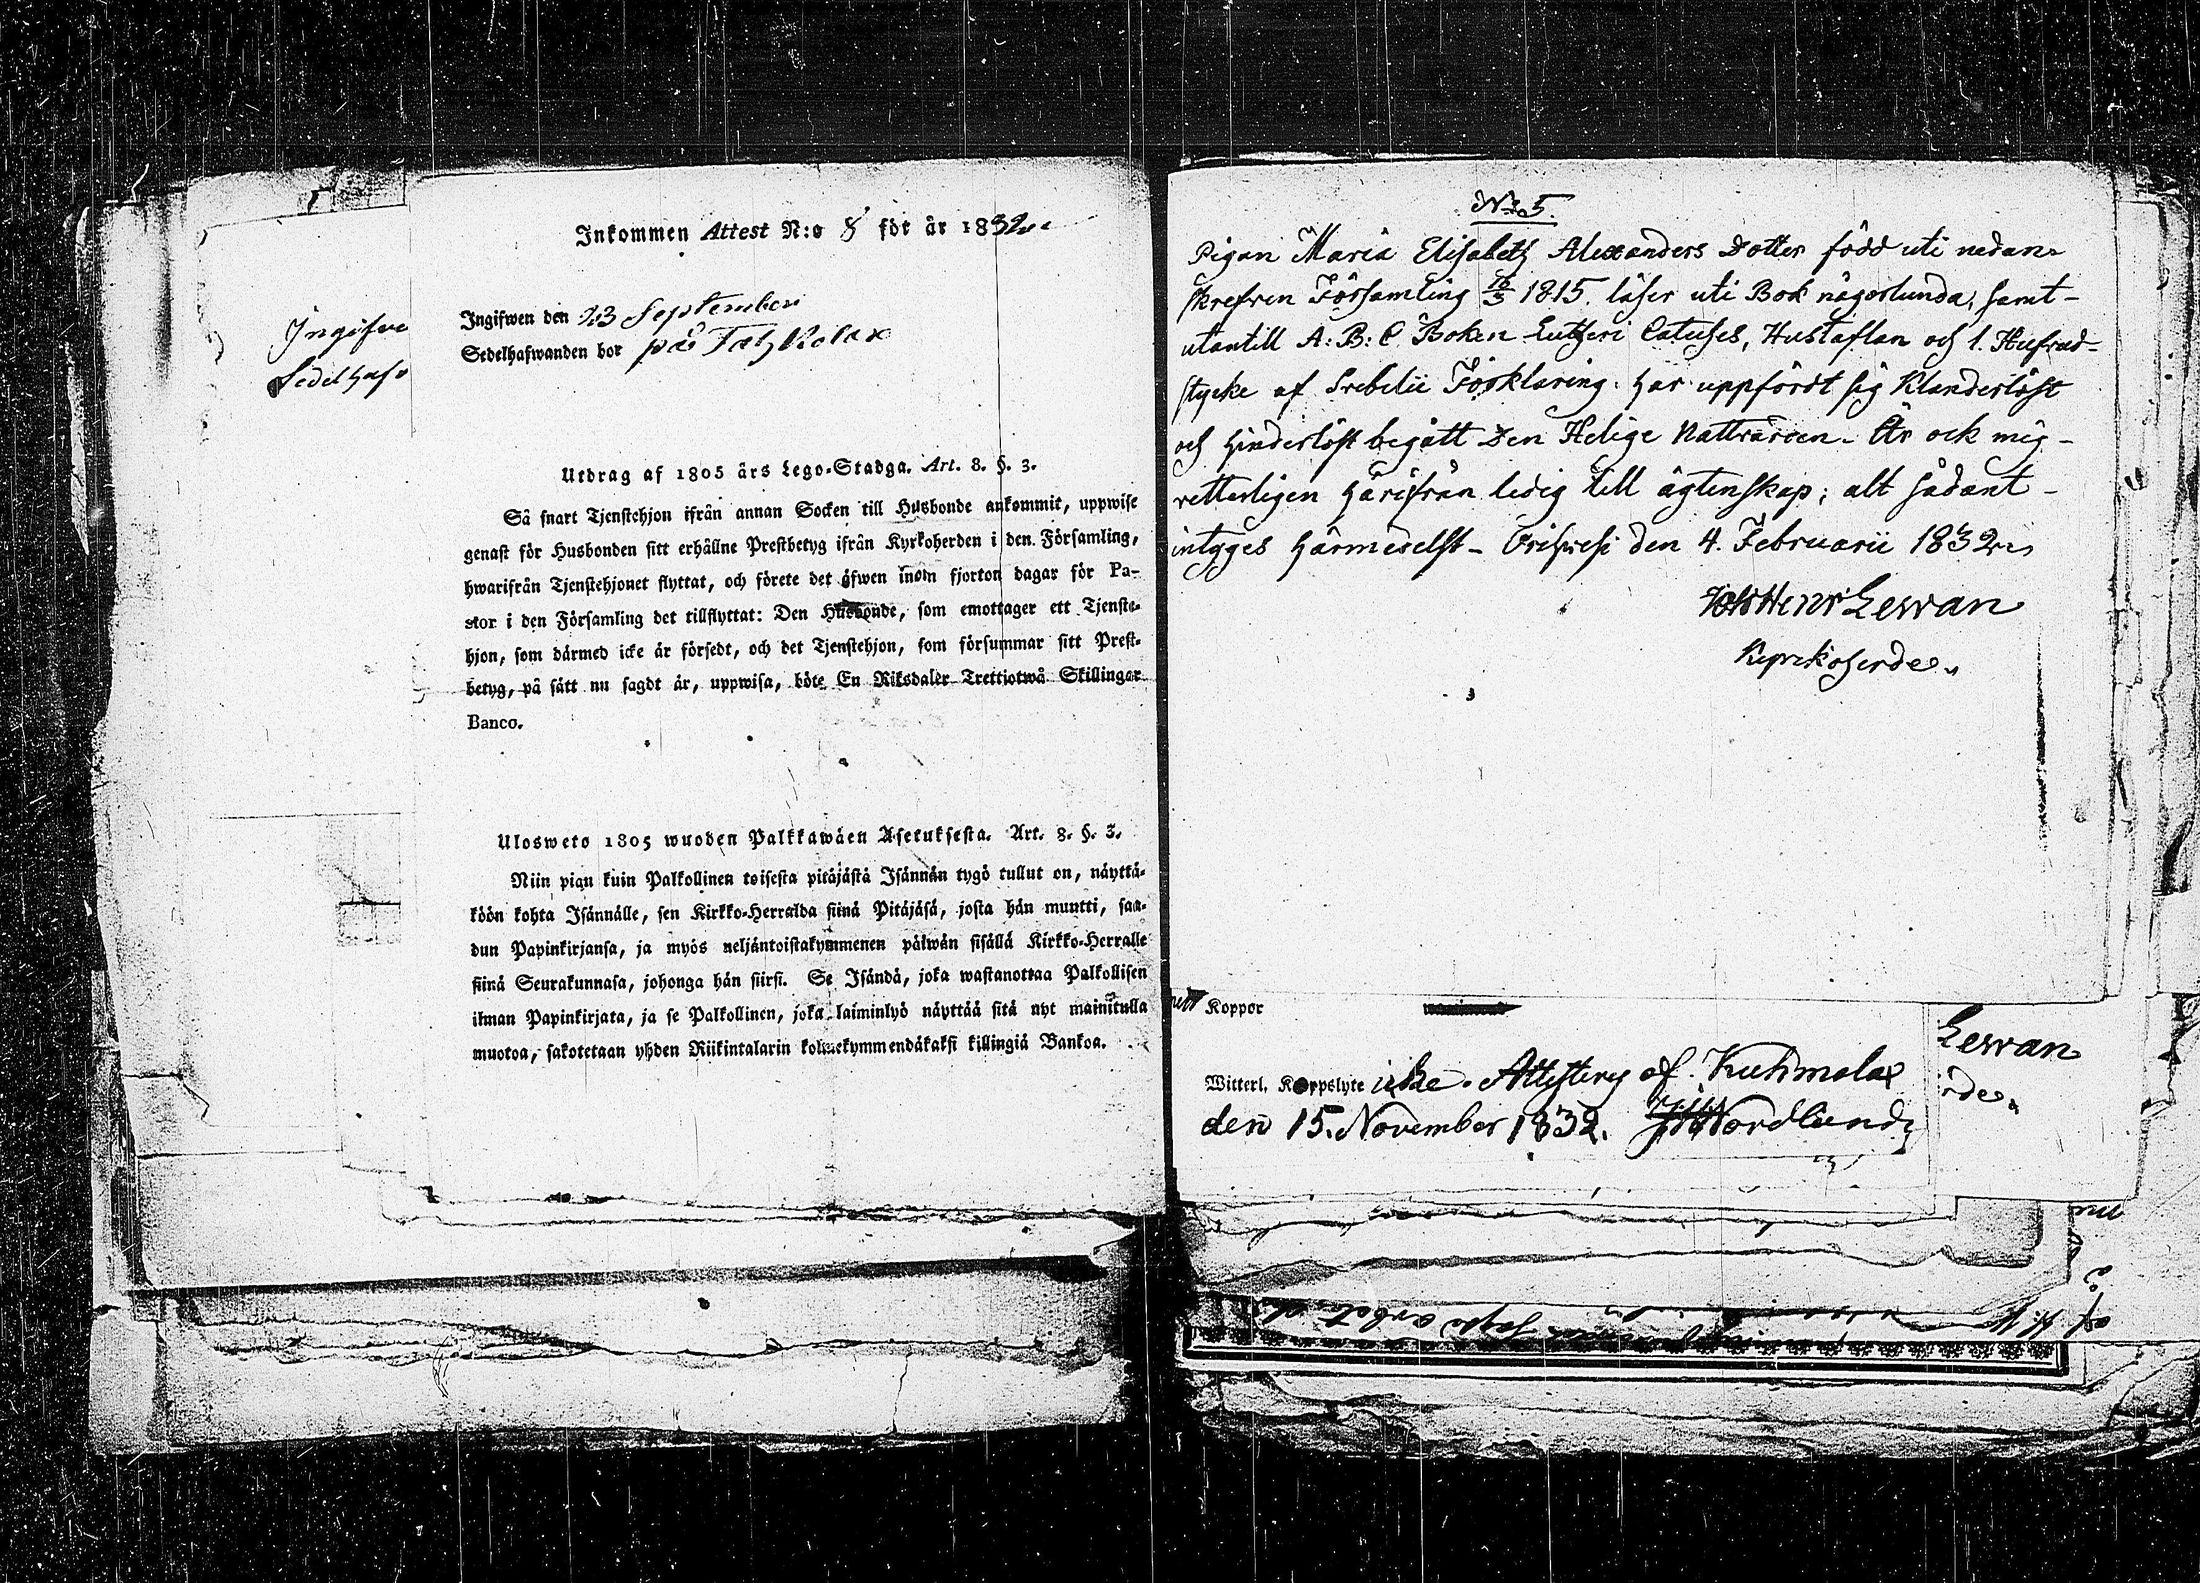 Inkommen Attest N:o 8 för år 1832
Ingifwen den 23 September
Sedelhafwanden bor på
Ingifwe
Sedelhafw
Utdrag af 1805 års Lego-Stadga. Art. 8. §. 3.
Så snart Tjenstehjon ifrån annan Socken till Husbonde ankommit, uppwise
genast för Husbonden sitt erhållne Prestbetyg ifrån Kyrkoherden i den Församling,
hwarifrån Tjenstehjonet flyttat, och förete det äfwen inom fjorton dagar för Pa-
stor i den Församling det tillflyttat: Den Husbonde, som emottager ett Tjenste-
hjon, som därmed icke är försedt, och det Tjenstehjon, som försummar sitt Prest-
betyg, på sätt nu sagdt är, uppwisa, böte En Riksdaler Trettiotwå Skillingar
Banco.
Ulosweto 1805 wuoden Palkkawäen Asetuksesta. Art. 8. §. 3.
Niin pian kuin Palkollinen toisesta pitäjästä Isännän tygö tullut on, näyttä-
köön kohta Isännälle, sen Kirkko-Herralda siinä Pitäjäsä, josta hän muutti, saa-
dun Papinkirjansa, ja myös neljäntoistakymmenen päiwän sisällä Kirkko-Herralle
siinä Seurakunnasa, johonga hän siirsi. Se Isändä, joka wastanottaa Palkollisen
ilman Papinkirjata, ja se Palkollinen, joka laiminlyö näyttää sitä nyt mainitulla
muotoa, sakotetaan yhden Riikintalarin kolmekymmendäkaksi killingiä Bankoa.
No 5.
Pigan Maria Elisabeth Alexanders Dotter född uti nedan-
skrefven Församling 16/3 1815. läser uti Bok någorlunda, samt-
utantill A: B: C Boken Lutheri Cateches, Hustaflan och 1. Hufvud-
stycke af Svebelii Förklaring. har uppfördt sig Klanderlöst
och hinderlöst begått Den Helige Nattvarden. Är ock mig-
vetterligen härifrån ledig till ägtenskap; alt sådant-
intyges härmedelst- Orisvesi den 4. Februarii 1832
Joh Henr Lewan
Kyrckoherde.
Koppor
Witterl. Koppslyte icke. Attesteras af. Kuhmolax
den 15. November 1832. Nordlund
Lewan
rde.